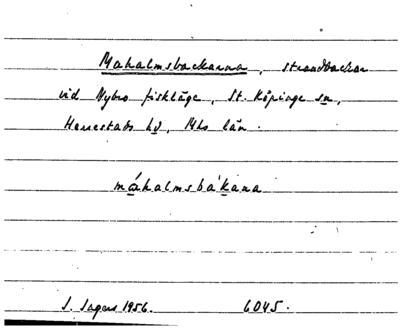 Mahalmsbackarna, strandbackar
vid Nybro fiskläge, St. Köpinge sn,
Herrestads hd, Mhs län.
máhalmsbákana
S. 1956. 6045.